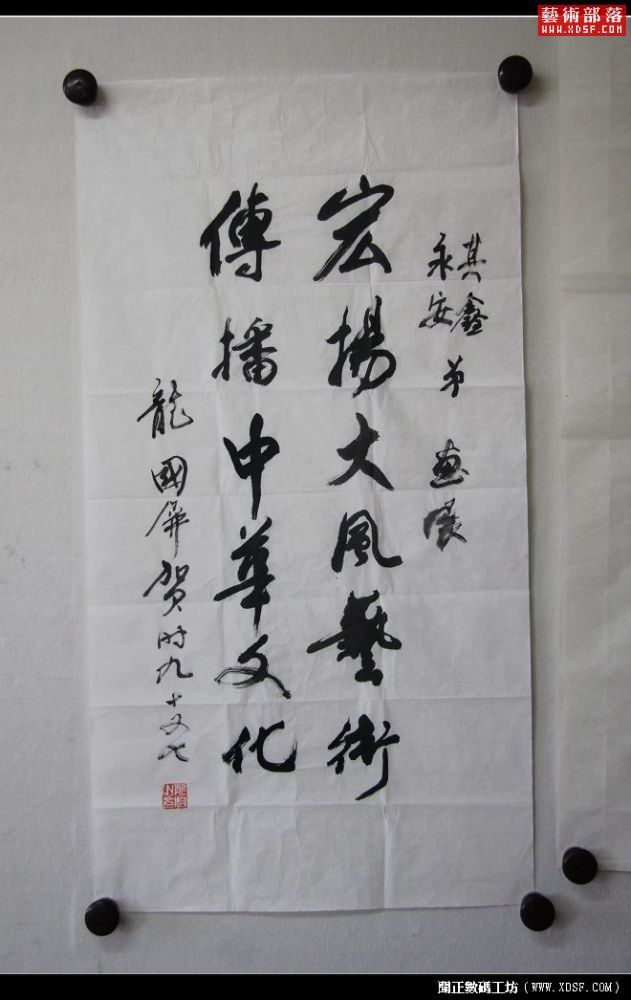 藝術部落
WWW.XDSF.COM
其鑫
永安弟 画展
宏揚大風藝術
傳播中華文化
龍國屏賀時九十又七
閩正數碼工坊（WWW.XDSF.COM）